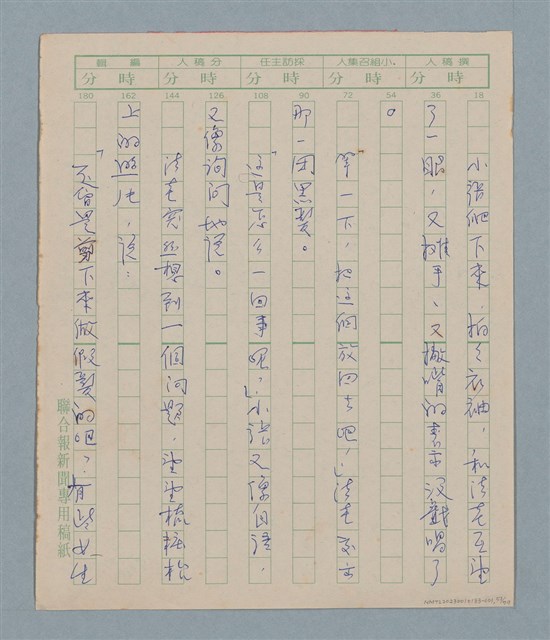 撰稿人 小組召集人 採訪主任 分稿人 編輯
時 分 時 分 時 分 時 分 時 分
18 36 54 72 90 108 126 144 162 180
小張爬下來，拍拍衣袖，和法老互望
了一眼，又攤手、又撇嘴的表示沒戲唱了
。
等一下，把這個放回去吧，」法老交
那一團黑髮。
「這是怎么一回事呢？」小張又像自語，
又像詢問地說。
法老突然想到一個問題，望望梳粧枱
上的照片，說：
「不會是剪下來做假髮的吧？有些女生
聯合報新聞專用稿紙